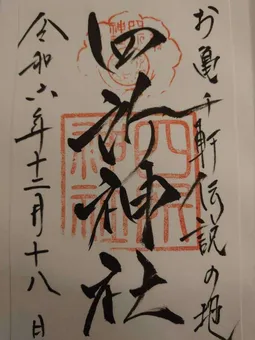 お亀千軒伝説の地
四所神社
令和六年十二月十八日